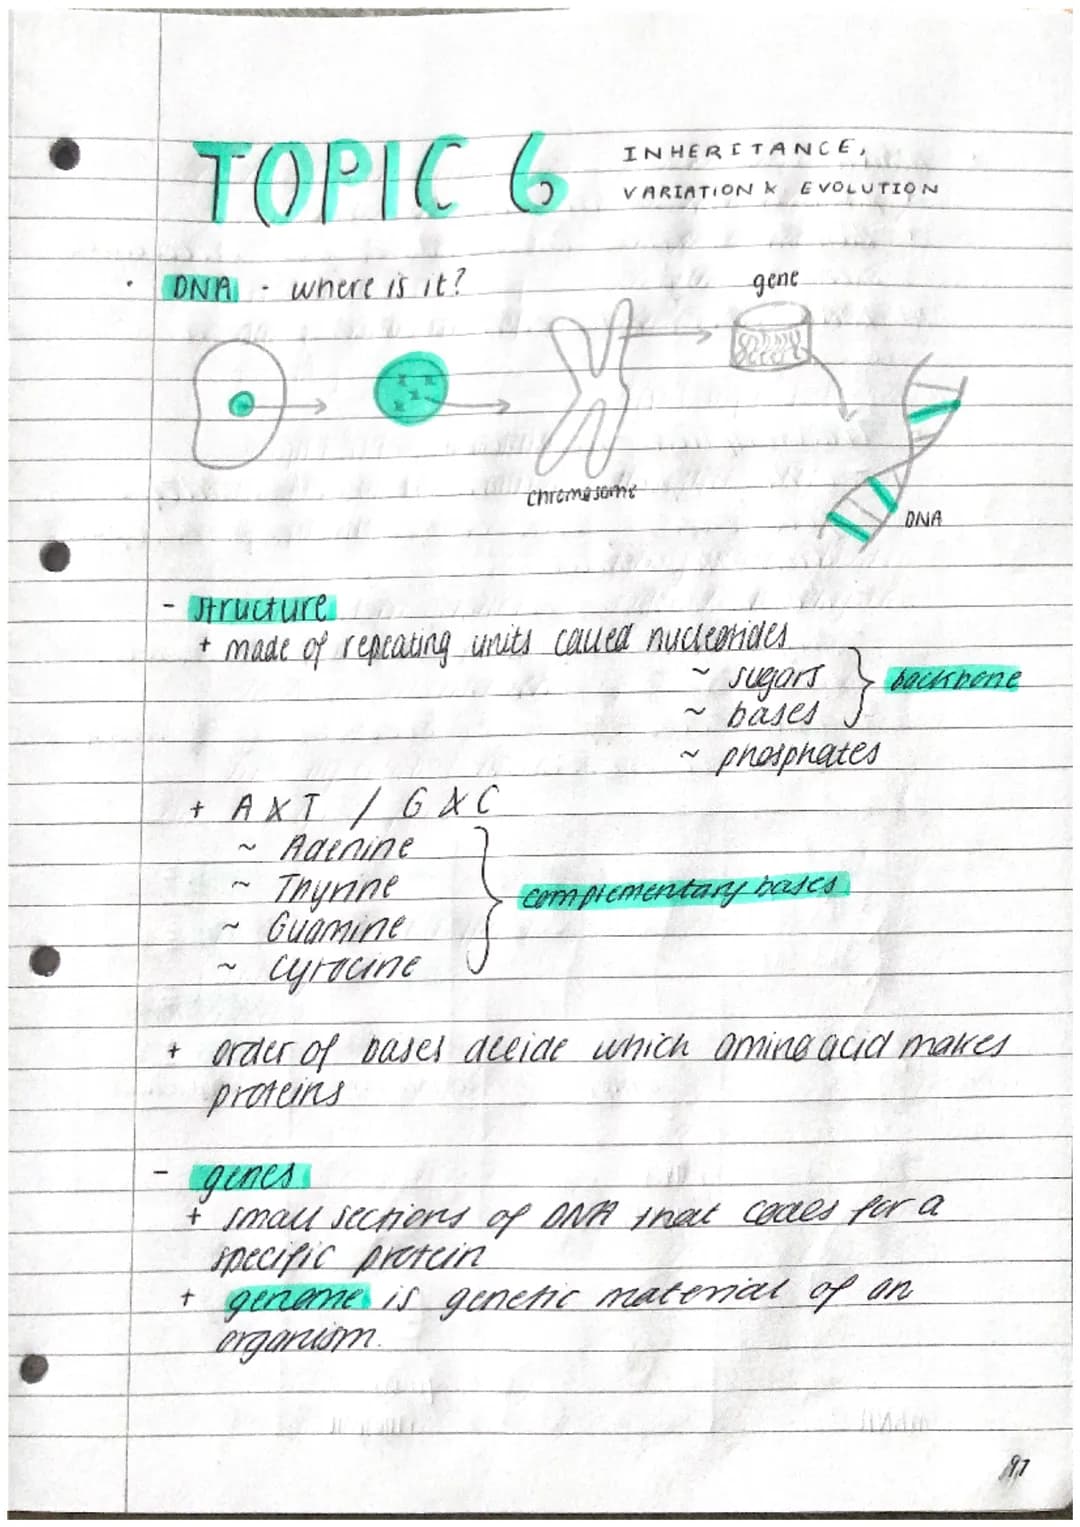 TOPIC 6
INHERITANCE,
VARIATION & EVOLUTION
· DNA - where is it?
gene
chromosome
DNA
- structure
+ made of repeating units called nucleotides
~ sugars
~ bases
} backbone
~ phosphates
+ A & T / G & C
~ Adenine
~ Thymine
~ Guamine
~ Cytocine
} complementary bases
+ order of bases decide which amino acid makes
proteins
- genes
+ small sections of DNA that codes for a
specific protein
+ genome is genetic material of an
organism.